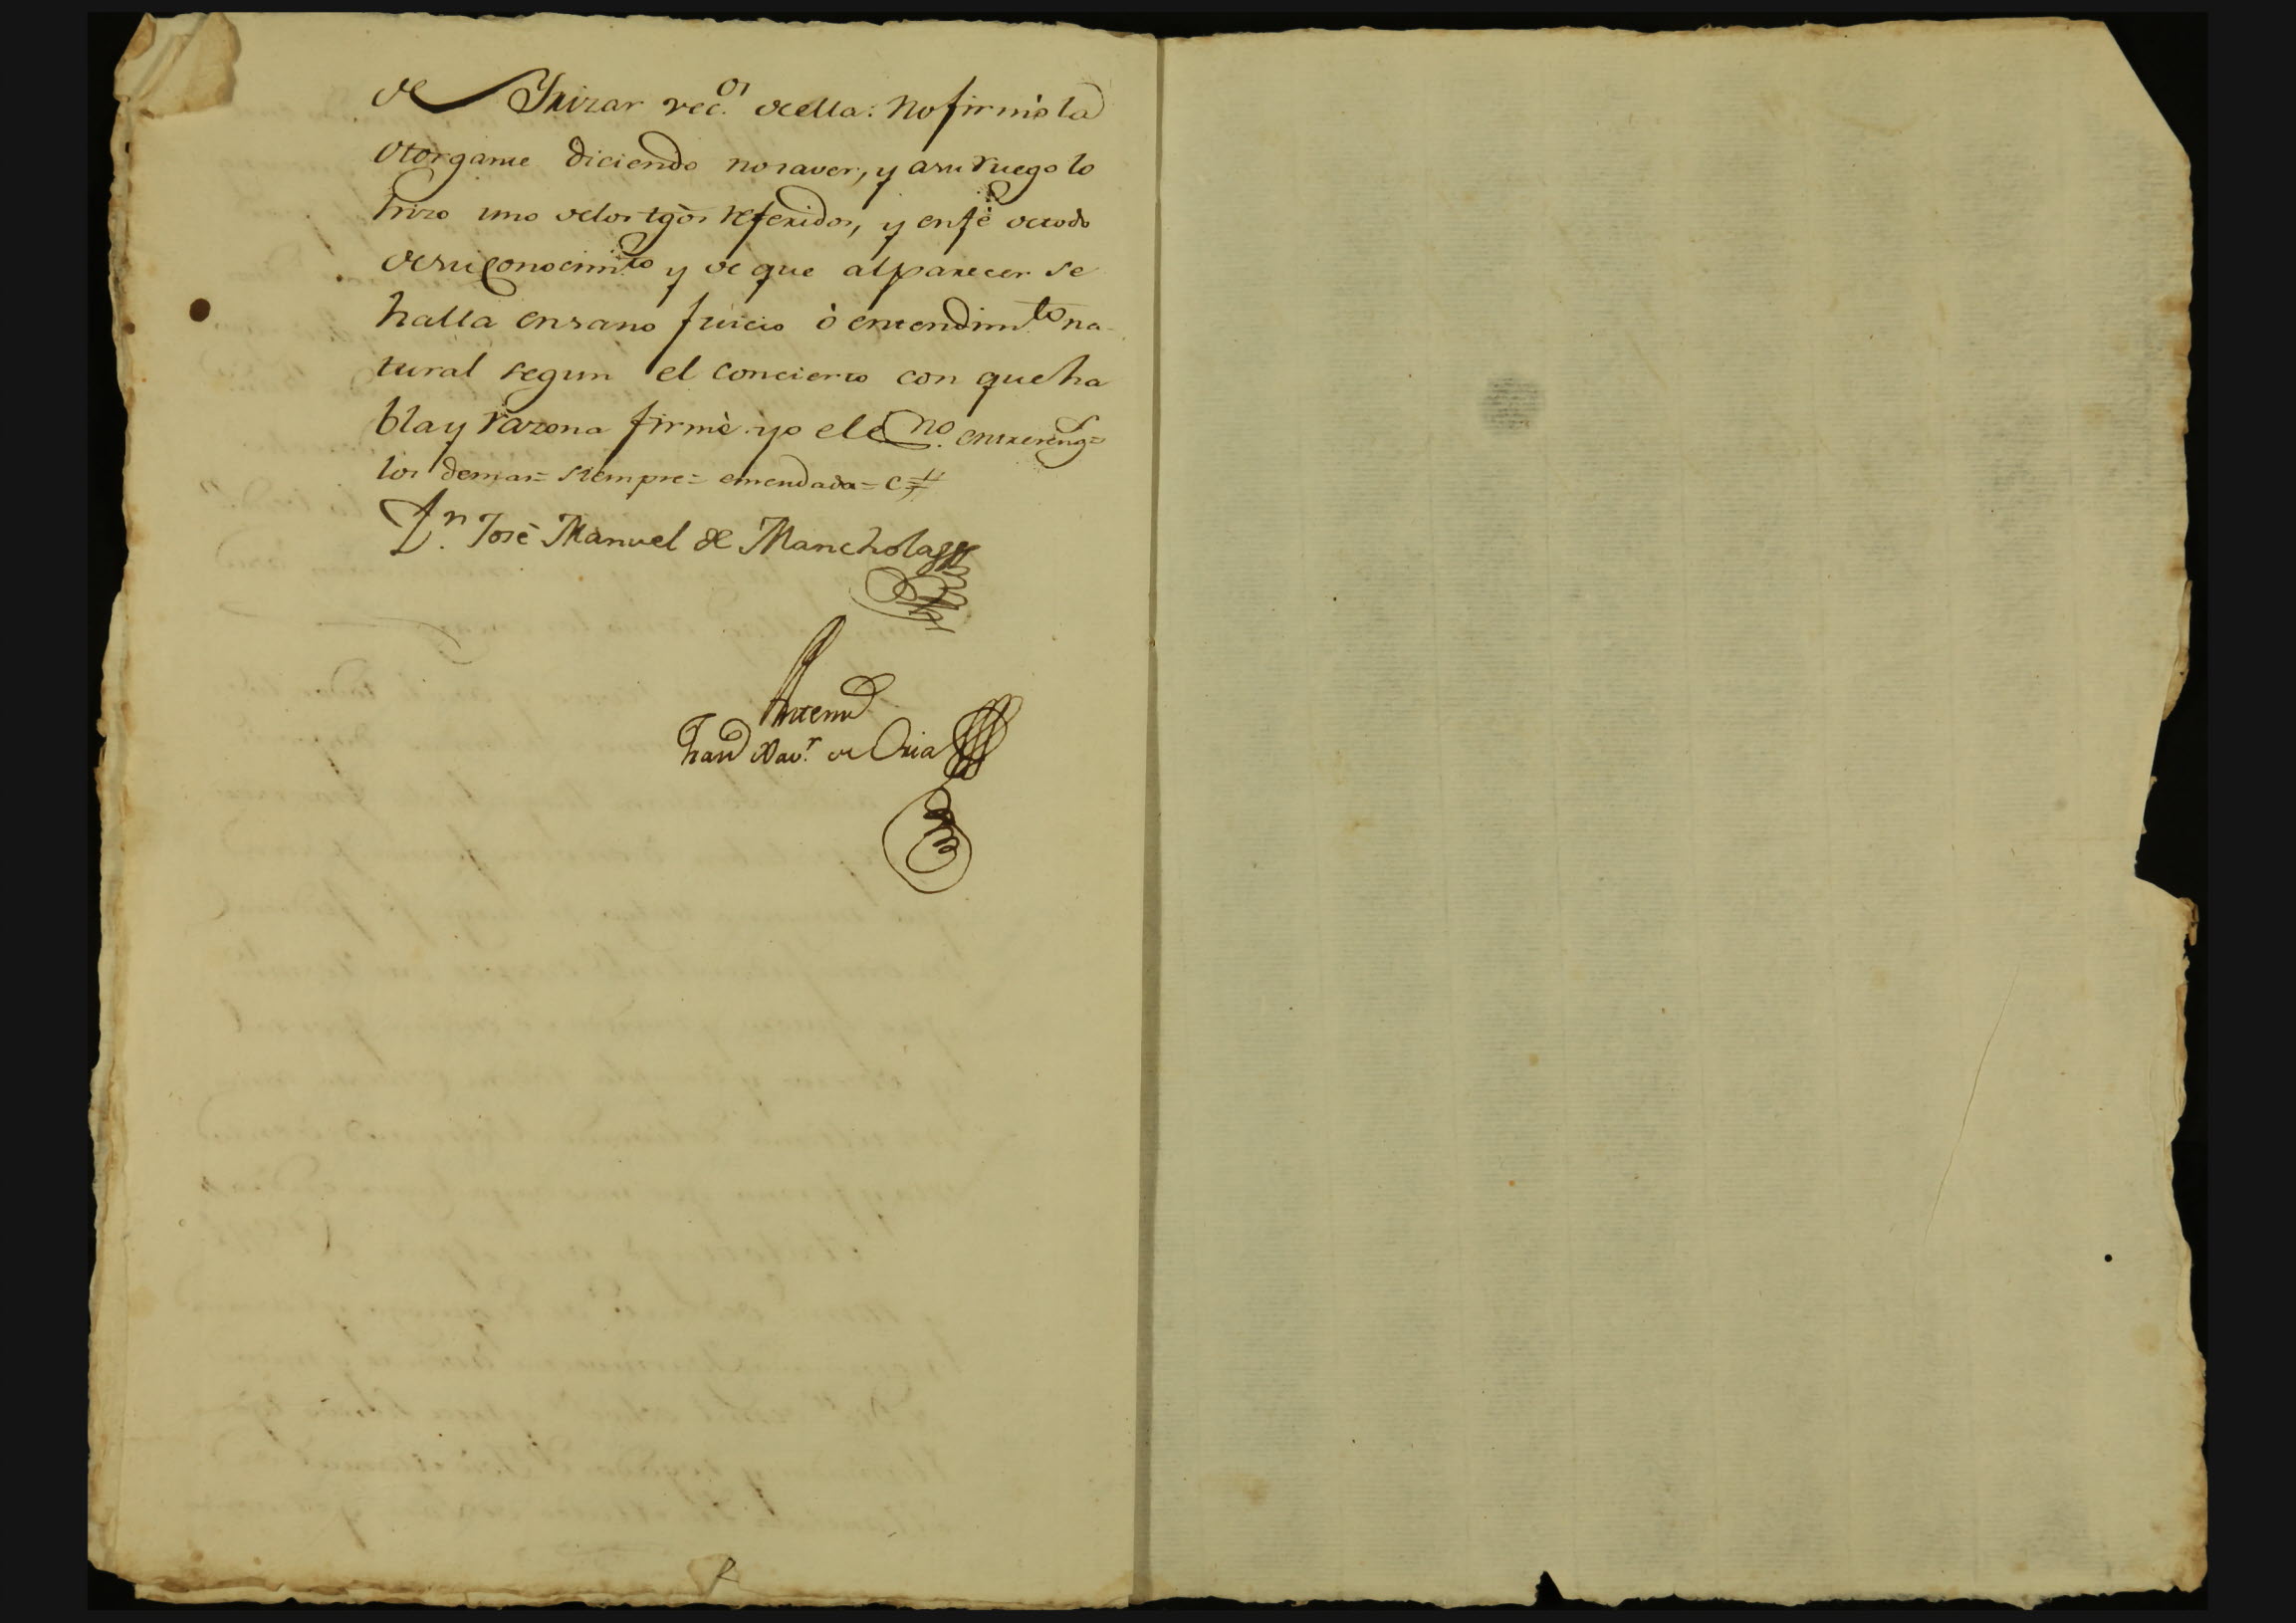 de Yrizar vec.os de ella: No firmó la
otorgante diciendo no saver, y a su ruego lo
hizo uno de los tgos referidos, y en fè de todo
de su conocim.to y de que al parecer se
halla en sano juicio ò entendim.to na-
tural segun el concierto con que ha
bla y razona firmè yo el Es.no entrereng.s=
los demas= siempre= emendada= e=
Dn. Josè Manuel de Mancholas
Antemi
Xav.r de Oria